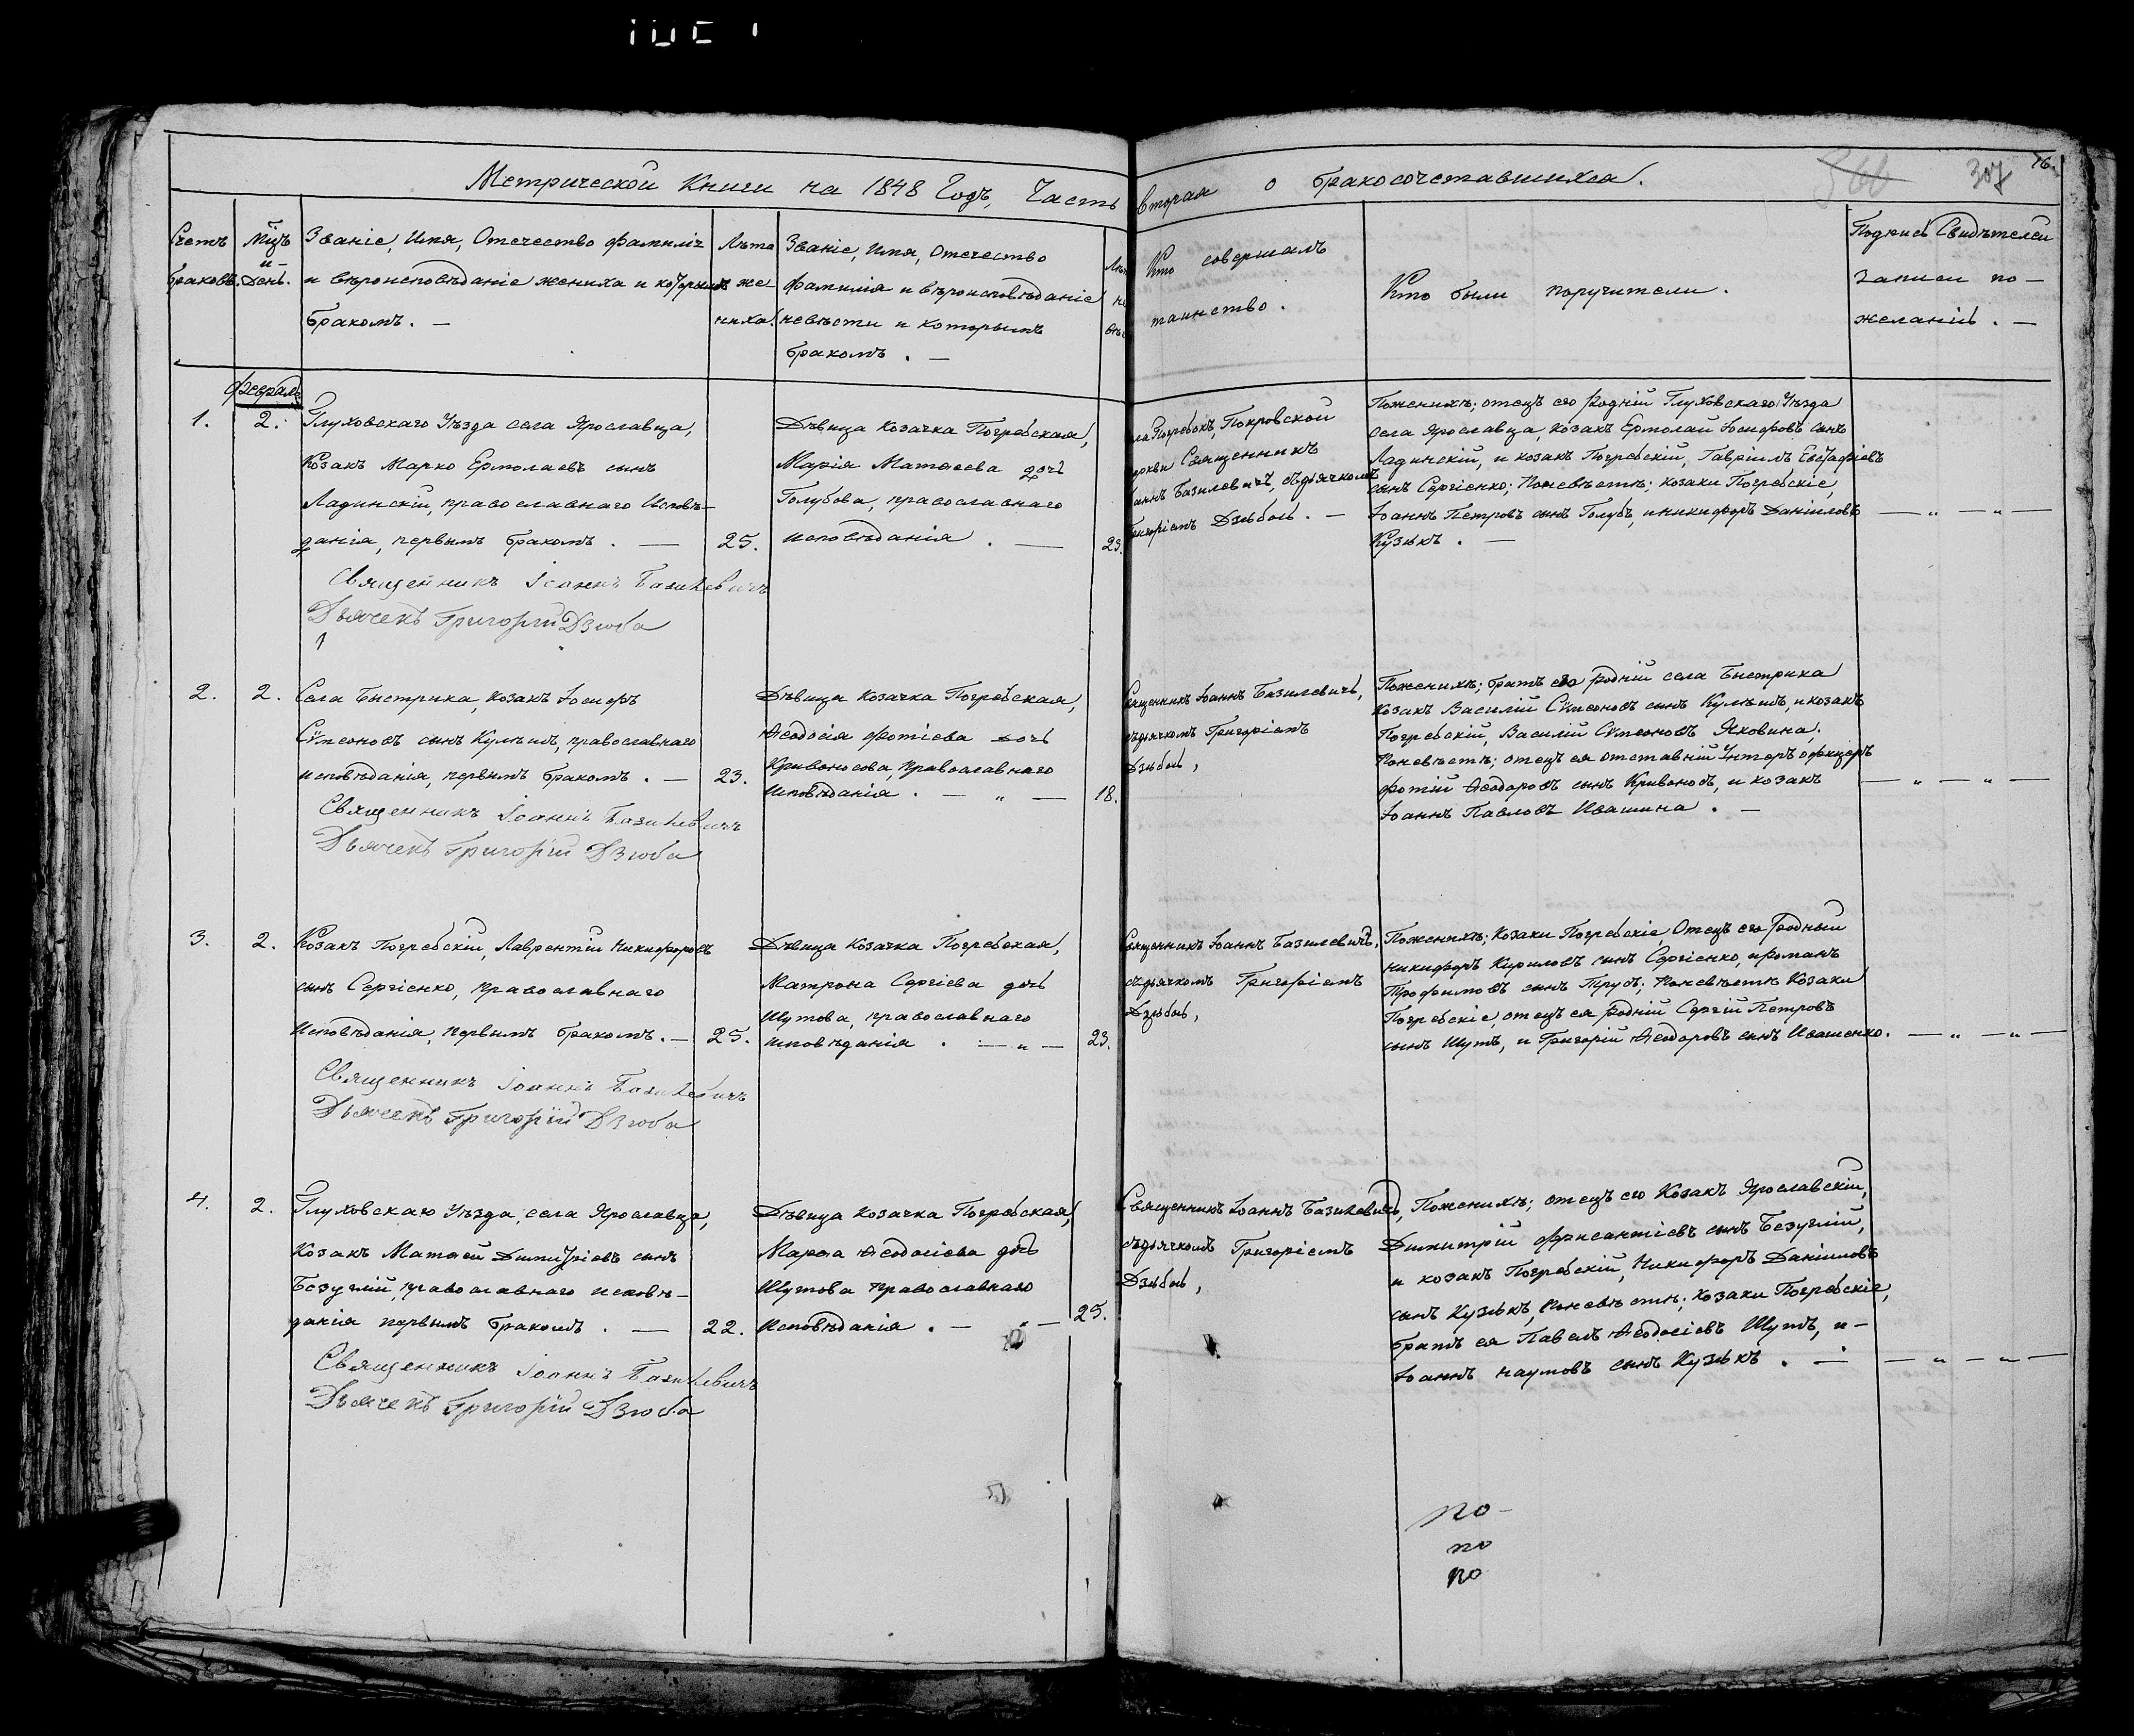 Метрической Книги на 1848 Годъ, Часть вторая о бракосочетавшихся.
307
76.
Счетъ браковъ.
Мцъ и День.
Званіе, Имя, Отечество фамилія
и вѣроисповѣданіе жениха и которымъ
бракомъ. —
Лѣта
же
ниха.
Званіе, Имя, Отечество
фамилія и вѣроисповѣданіе
невѣсты и которымъ
бракомъ. —
Кто совершалъ
таинство.
Кто были поручители.
Подпись Свидѣтелей
записи по —
желанію. —
Февраль
1.
2.
Глуховскаго Уѣзда села Ярославца,
Козакъ Марко Ермолаевъ сынъ
Ладинскій, православнаго Исповѣ-
данія, первымъ бракомъ. —
25.
Дѣвица Козачка Погребская,
Марія Матѳеева дочь
Голубова, православнаго
исповѣданія. —
23.
ла Погребокъ, Покровской
еркви Священникъ
оаннъ Базилевичъ, съдьячкомъ
Григоріемъ Дзюбою. —
Поженихѣ; отецъ его родній Глуховскаго Уѣзда
села Ярославца, козакъ Ермолай Іосифовъ сынъ
Ладинскій, и козакъ Погребскій, Гавріилъ Евстафіевъ
сынъ Сергіенко; Поневѣстѣ; козаки Погребскіе,
Іоаннъ Петровъ сынъ Голубъ, иникифоръ Даніиловъ
Кузюкъ. —
— „ — „ —
Священникъ Іоаннъ Базилевичъ
Дьячекъ Григорій Дзюба
2.
2.
Села Быстрика, козакъ Іосифъ
Сѵмеоновъ сынъ Кулѣшъ, православнаго
исповѣданія, первымъ бракомъ. —
23.
Дѣвица Козачка Погребская,
Ѳеодосія Фотіева дочь
Кривоносова, православнаго
исповѣданія. — „ —
18.
Священникъ Іоаннъ Базилевичъ,
съдьячкомъ Григоріемъ
Дзюбою,
Поженихѣ; братъ его родній села Быстрика
козакъ Василій Сѵмеоновъ сынъ Кулѣшъ, икозакъ
Погребскій, Василій Сѵмеоновъ Яковина;
Поневѣстѣ; отецъ ея отставній Унтеръ офицеръ
Фотій Ѳеодоровъ сынъ Кривоносъ, и козакъ
Іоаннъ Павловъ Ивашина. —
— „ — „ —
Священникъ Іоаннъ Базилевичъ
Дьячекъ Григорій Дзюба
3.
2.
Козакъ Погребскій, Лаврентій Никифоровъ
сынъ Сергіенко, православнаго
Исповѣданія, первымъ бракомъ. —
25.
Дѣвица Козачка Погребская,
Матрона Сергіева дочь
Шутова, православнаго
исповѣданія. — „ —
23.
Священникъ Іоаннъ Базилевичъ,
съдьячкомъ Григоріемъ
Дзюбою,
Поженихѣ; Козаки Погребскіе, Отецъ его Родный
Никифоръ Кириловъ сынъ Сергіенко, ироманъ
Трофимовъ сынъ Трусъ; Поневѣстѣ Козаки
Погребскіе, отецъ ея родній Сергій Петровъ
сынъ Шутъ, и Григорій Ѳеодоровъ сынъ Иващенко.
— „ — „ —
Священникъ Іоаннъ Базилевичъ
Дьячекъ Григорій Дзюба
4.
2.
Глуховскаго Уѣзда, села Ярославца,
Козакъ Матѳей Димитріевъ сынъ
Безуглій, православнаго исповѣ-
данія первымъ бракомъ. —
22.
Дѣвица Козачка Погребская,
Марѳа Ѳеодосіева дочь
Шутова православнаго
Исповѣданія. — „ —
25.
Священникъ Іоаннъ Базилевичъ,
съдьячкомъ Григоріемъ
Дзюбою,
Поженихѣ; отецъ его Козакъ Ярославскій,
Димитрій Фрисантіевъ сынъ Безуглій,
и козакъ Погребскій, Никифоръ Даніиловъ
сынъ Кузюкъ, Поневѣстѣ; Козаки Погребскіе,
братъ ея Павелъ Ѳеодосіевъ Шутъ, и —
Іоаннъ Наумовъ сынъ Кузюкъ. —
— „ — „ —
Священникъ Іоаннъ Базилевичъ
Дьячекъ Григорій Дзюба
по —
по
по